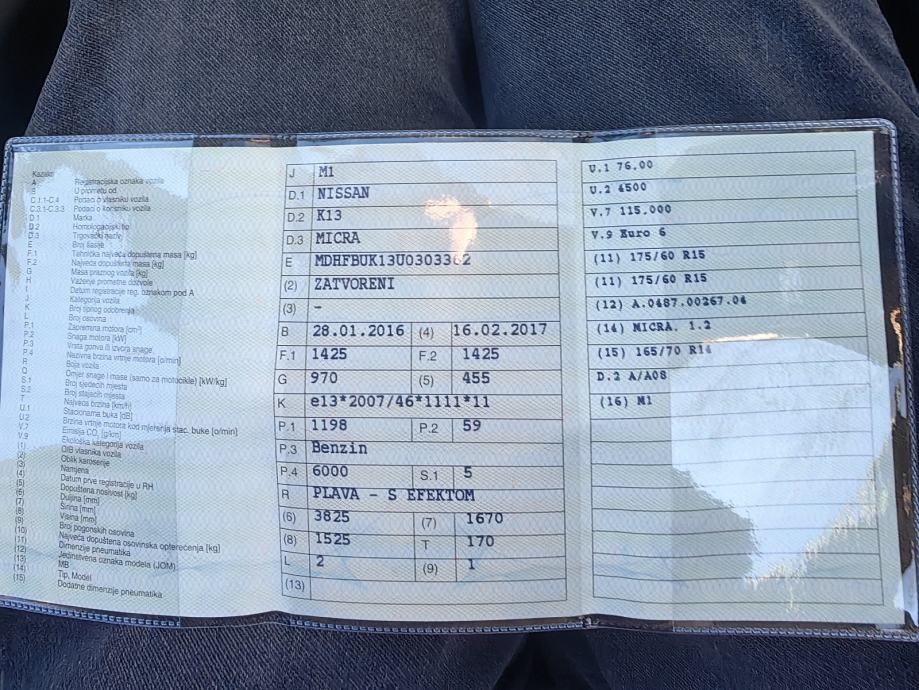 Kazalo
A Registracijska oznaka vozila
B U prometu od
C.1.1-C.4 Podaci o vlasniku vozila
C.3.1-C.3.3 Podaci o korisniku vozila
D.1 Marka
D.2 Homologacijski tip
D.3 Trgovački naziv
E Broj šasije
F.1 Tehnička najveća dopuštena masa [kg]
F.2 Najveća dopuštena masa [kg]
G Masa praznog vozila [kg]
H Važenje prometne dozvole
I Datum registracije reg. oznakom pod A
J Kategorija vozila
K Broj tipnog odobrenja
L Broj osovina
P.1 Zapremina motora [cm³]
P.2 Snaga motora [kW]
P.3 Vrsta goriva ili izvora snage
P.4 Nazivna brzina vrtnje motora [o/min]
R Boja vozila
Q Omjer snage i mase (samo za motocikle) [kW/kg]
S.1 Broj sjedećih mjesta
S.2 Broj stajaćih mjesta
T Najveća brzina [km/h]
U.1 Stacionarna buka [dB]
U.2 Brzina vrtnje motora kod mjerenja stac. buke [o/min]
V.7 Emisija CO₂ [g/km]
V.9 Ekološka kategorija vozila
(1) OIB vlasnika vozila
(2) Oblik karoserije
(3) Namjena
(4) Datum prve registracije u RH
(5) Dopuštena nosivost [kg]
(6) Duljina [mm]
(7) Širina [mm]
(8) Visina [mm]
(9) Broj pogonskih osovina
(10) Najveća dopuštena osovinska opterećenja [kg]
(11) Dimenzije pneumatika
(12) Jedinstvena oznaka modela (JOM)
(13) MB
(14) Tip, Model
(15) Dodatne dimenzije pneumatika
J M1
D.1 NISSAN
D.2 K13
D.3 MICRA
E
(2) ZATVORENI
(3) -
B 28.01.2016 (4) 16.02.2017
F.1 1425 F.2 1425
G 970 (5) 455
K e13*2007/46*1111*11
P.1 1198 P.2 59
P.3 Benzin
P.4 6000 S.1 5
R PLAVA - S EFEKTOM
(6) 3825 (7) 1670
(8) 1525 T 170
L 2 (9) 1
(13)
U.1 76.00
U.2 4500
V.7 115.000
V.9 Euro 6
(11) 175/60 R15
(11) 175/60 R15
(12) A.0487.00267.04
(14) MICRA. 1.2
(15) 165/70 R14
D.2 A/A08
(16) M1